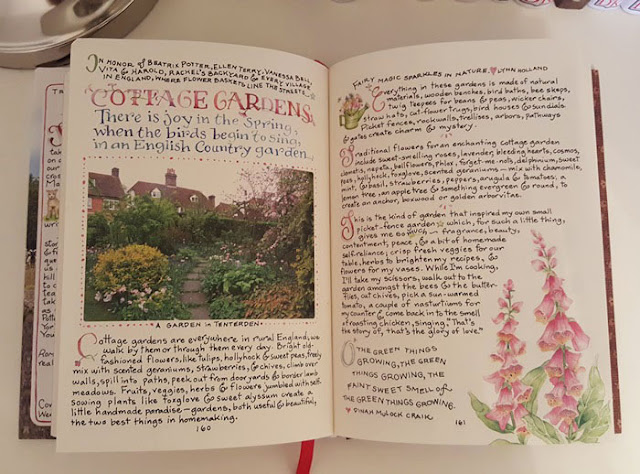 In honor of Beatrix Potter, Ellen Terry, Vanessa Bell,
Vita & Harold, Rachel's backyard & every village
in England, where flower baskets line the streets...
COTTAGE GARDENS
There is joy in the spring,
when the birds begin to sing,
in an English Country garden...
A GARDEN in TENTERDEN
Cottage gardens are everywhere in rural England, we
walk by them or through them every day. Bright old-
fashioned flowers, like tulips, hollyhock & sweet peas, freely
mix with scented geraniums, strawberries, & chives, climb over
walls, spill into paths, peek out from door yards & border lamb
meadows. Fruits, veggies, herbs & flowers jumbled with self-
sowing plants like foxglove & sweet alyssum create a
little handmade paradise — gardens, both useful & beautiful,
the two best things in homemaking.
160
FAIRY MAGIC SPARKLES IN NATURE. ♥ LYNN HOLLAND
Everything in these gardens is made of natural
materials, wooden benches, bird baths, bee skeps,
twig teepees for beans & peas, wicker chairs,
straw hats, cut-flower trugs, bird houses & sundials.
Picket fences, rock walls, trellises, arbors, pathways
& gates create charm & mystery.
Traditional flowers for an enchanting cottage garden
include sweet-smelling roses, lavender, bleeding hearts, cosmos,
clematis, nepeta, bellflowers, phlox, forget-me-nots, delphinium, sweet
peas, hollyhock, foxglove, scented geraniums — mix with chamomile,
mint, & basil, strawberries, peppers, arugula & tomatoes; a
lemon tree, an apple tree & something evergreen & round, to
create an anchor, boxwood or golden arborvitae.
This is the kind of garden that inspired my own small
picket-fence garden which, for such a little thing,
gives me so much — fragrance, beauty,
contentment, peace, & a bit of homemade
self-reliance; crisp fresh veggies for our
table, herbs to brighten my recipes, &
flowers for my vases. While I'm cooking,
I'll take my scissors, walk out to the
garden amongst the bees & the butter-
flies, cut chives, pick a sun-warmed
tomato, a couple of nasturtiums for
my counter & come back in to the smell
of roasting chicken, singing, "That's
the story of, that's the glory of love."
O THE GREEN THINGS
GROWING, THE GREEN
THINGS GROWING, THE
FAINT SWEET SMELL OF
THE GREEN THINGS GROWING.
♥ DINAH MULOCK CRAIK
161